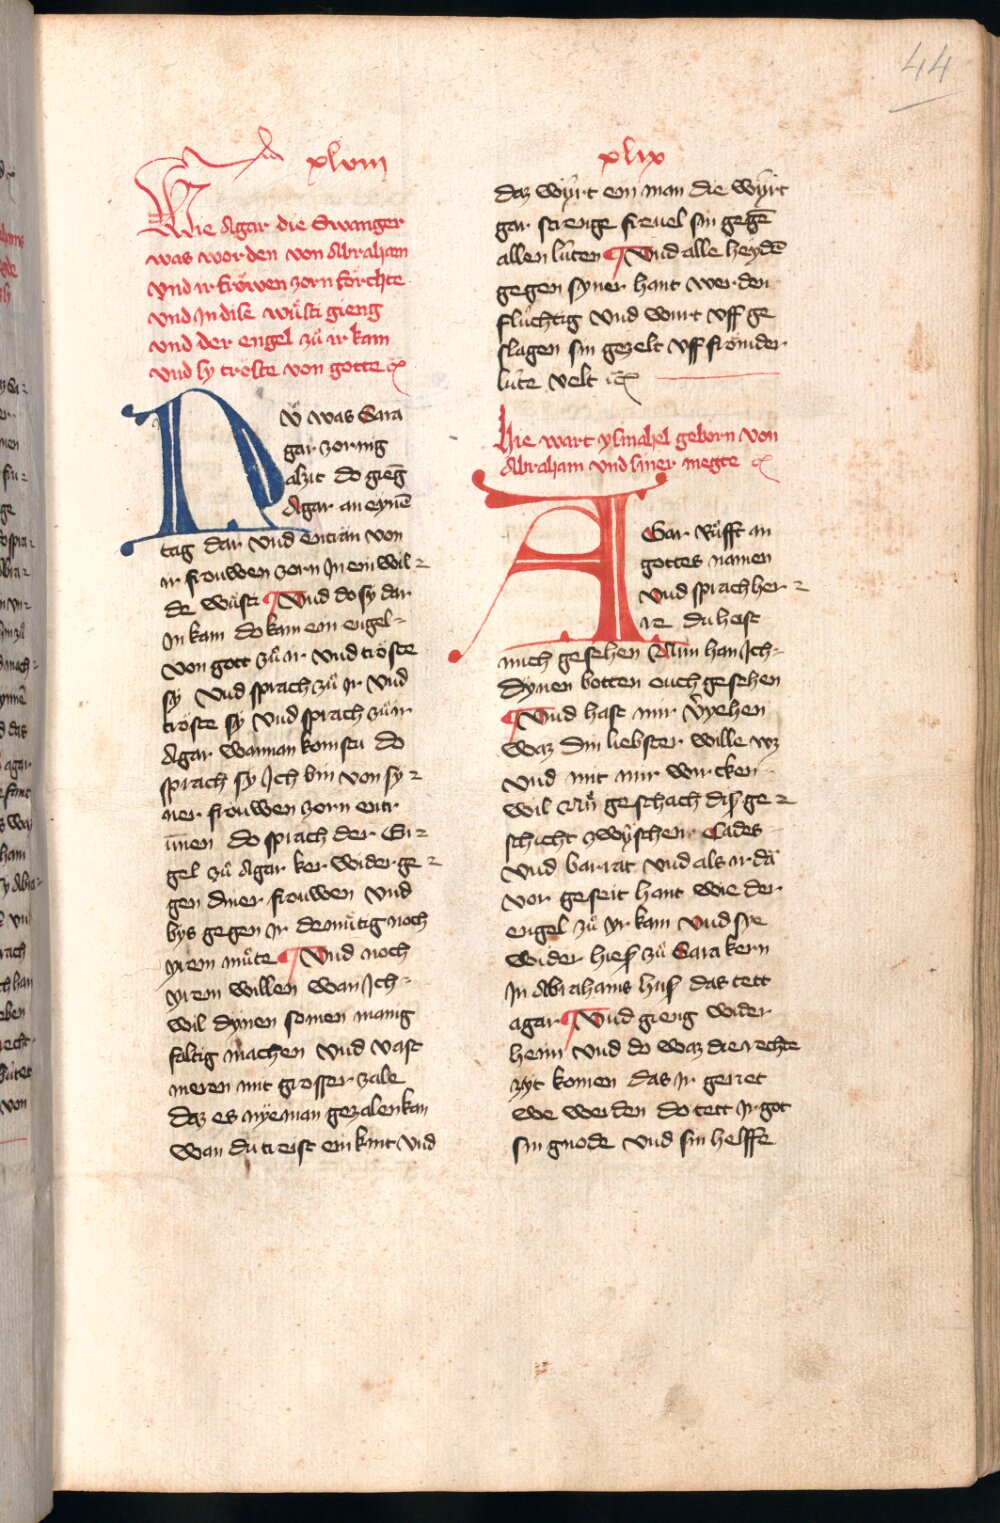 44
xlviii
Wie Agar die Swanger
was worden von Abraham
vnd ir fröwen zorn forchte
vnd In dise wuͤsti gieng
vnd der engel zuͦ ir kam
vnd sy tröste von gotte
NV was Sara
gar zornig
alzit do gieg̅
Agar an eyne̅
tag dar vnd entran von
ir frouwen zorn In ein wil-
de wuͤsti Vnd do sy dar
In kam do kam ein engel-
von gott zuͦ ir vnd tröste
sy vnd sprach zuͦ Ir vnd
tröste sy vnd sprach zuͦ ir
Agar wannan komstu do
sprach sy Ich bin von sy-
ner frouwen zorn entr
unnen do sprach der En-
gel zuͦ Agar ker wider ge-
gen diner frouwen vnd
bys gegen Ir demuͤtig noch
yrem muͦte Vnd noch
yrem willen wan Ich-
wil dynen somen manig
faltig machen vnd vast
meren mit grosser zale
daz es nyeman gezalen kan
wan du treist ein kint vnd
xlix
daz wyrt ein man die wyrt
gar strenge freuel sin gege̅
allen luͤten Vnd alle heyde̅
gegen syner hant werden
fluͤchtig vnd wirt vff ge
slagen sin gezelt vff frömder
luͤte velt
Hie wart ysmahel geborn von
Abraham vnd siner megte
AGar Ruͦfft an
gottes namen
vnd sprach her-
re du hest
mich gesehen Nun han Ich-
dynen botten ouch gesehen
Vnd hast mir v̉yehen
waz din liebster wille wz
vnd mit mir wurcken
wil Nuͦ geschach dis ge-
schicht zwyschen Cades
vnd barrat vnd als ir da
vor geseit hant wie der
engel zuͦ yr kam vnd sye
wider hies zuͦ Sara kern
In Abrahams hus das tett
agar Vnd gieng wider
heim vnd do waz die rechte
zyt komen das Ir geret
we werden do tett Ir got
sin gnode vnd sin helffe